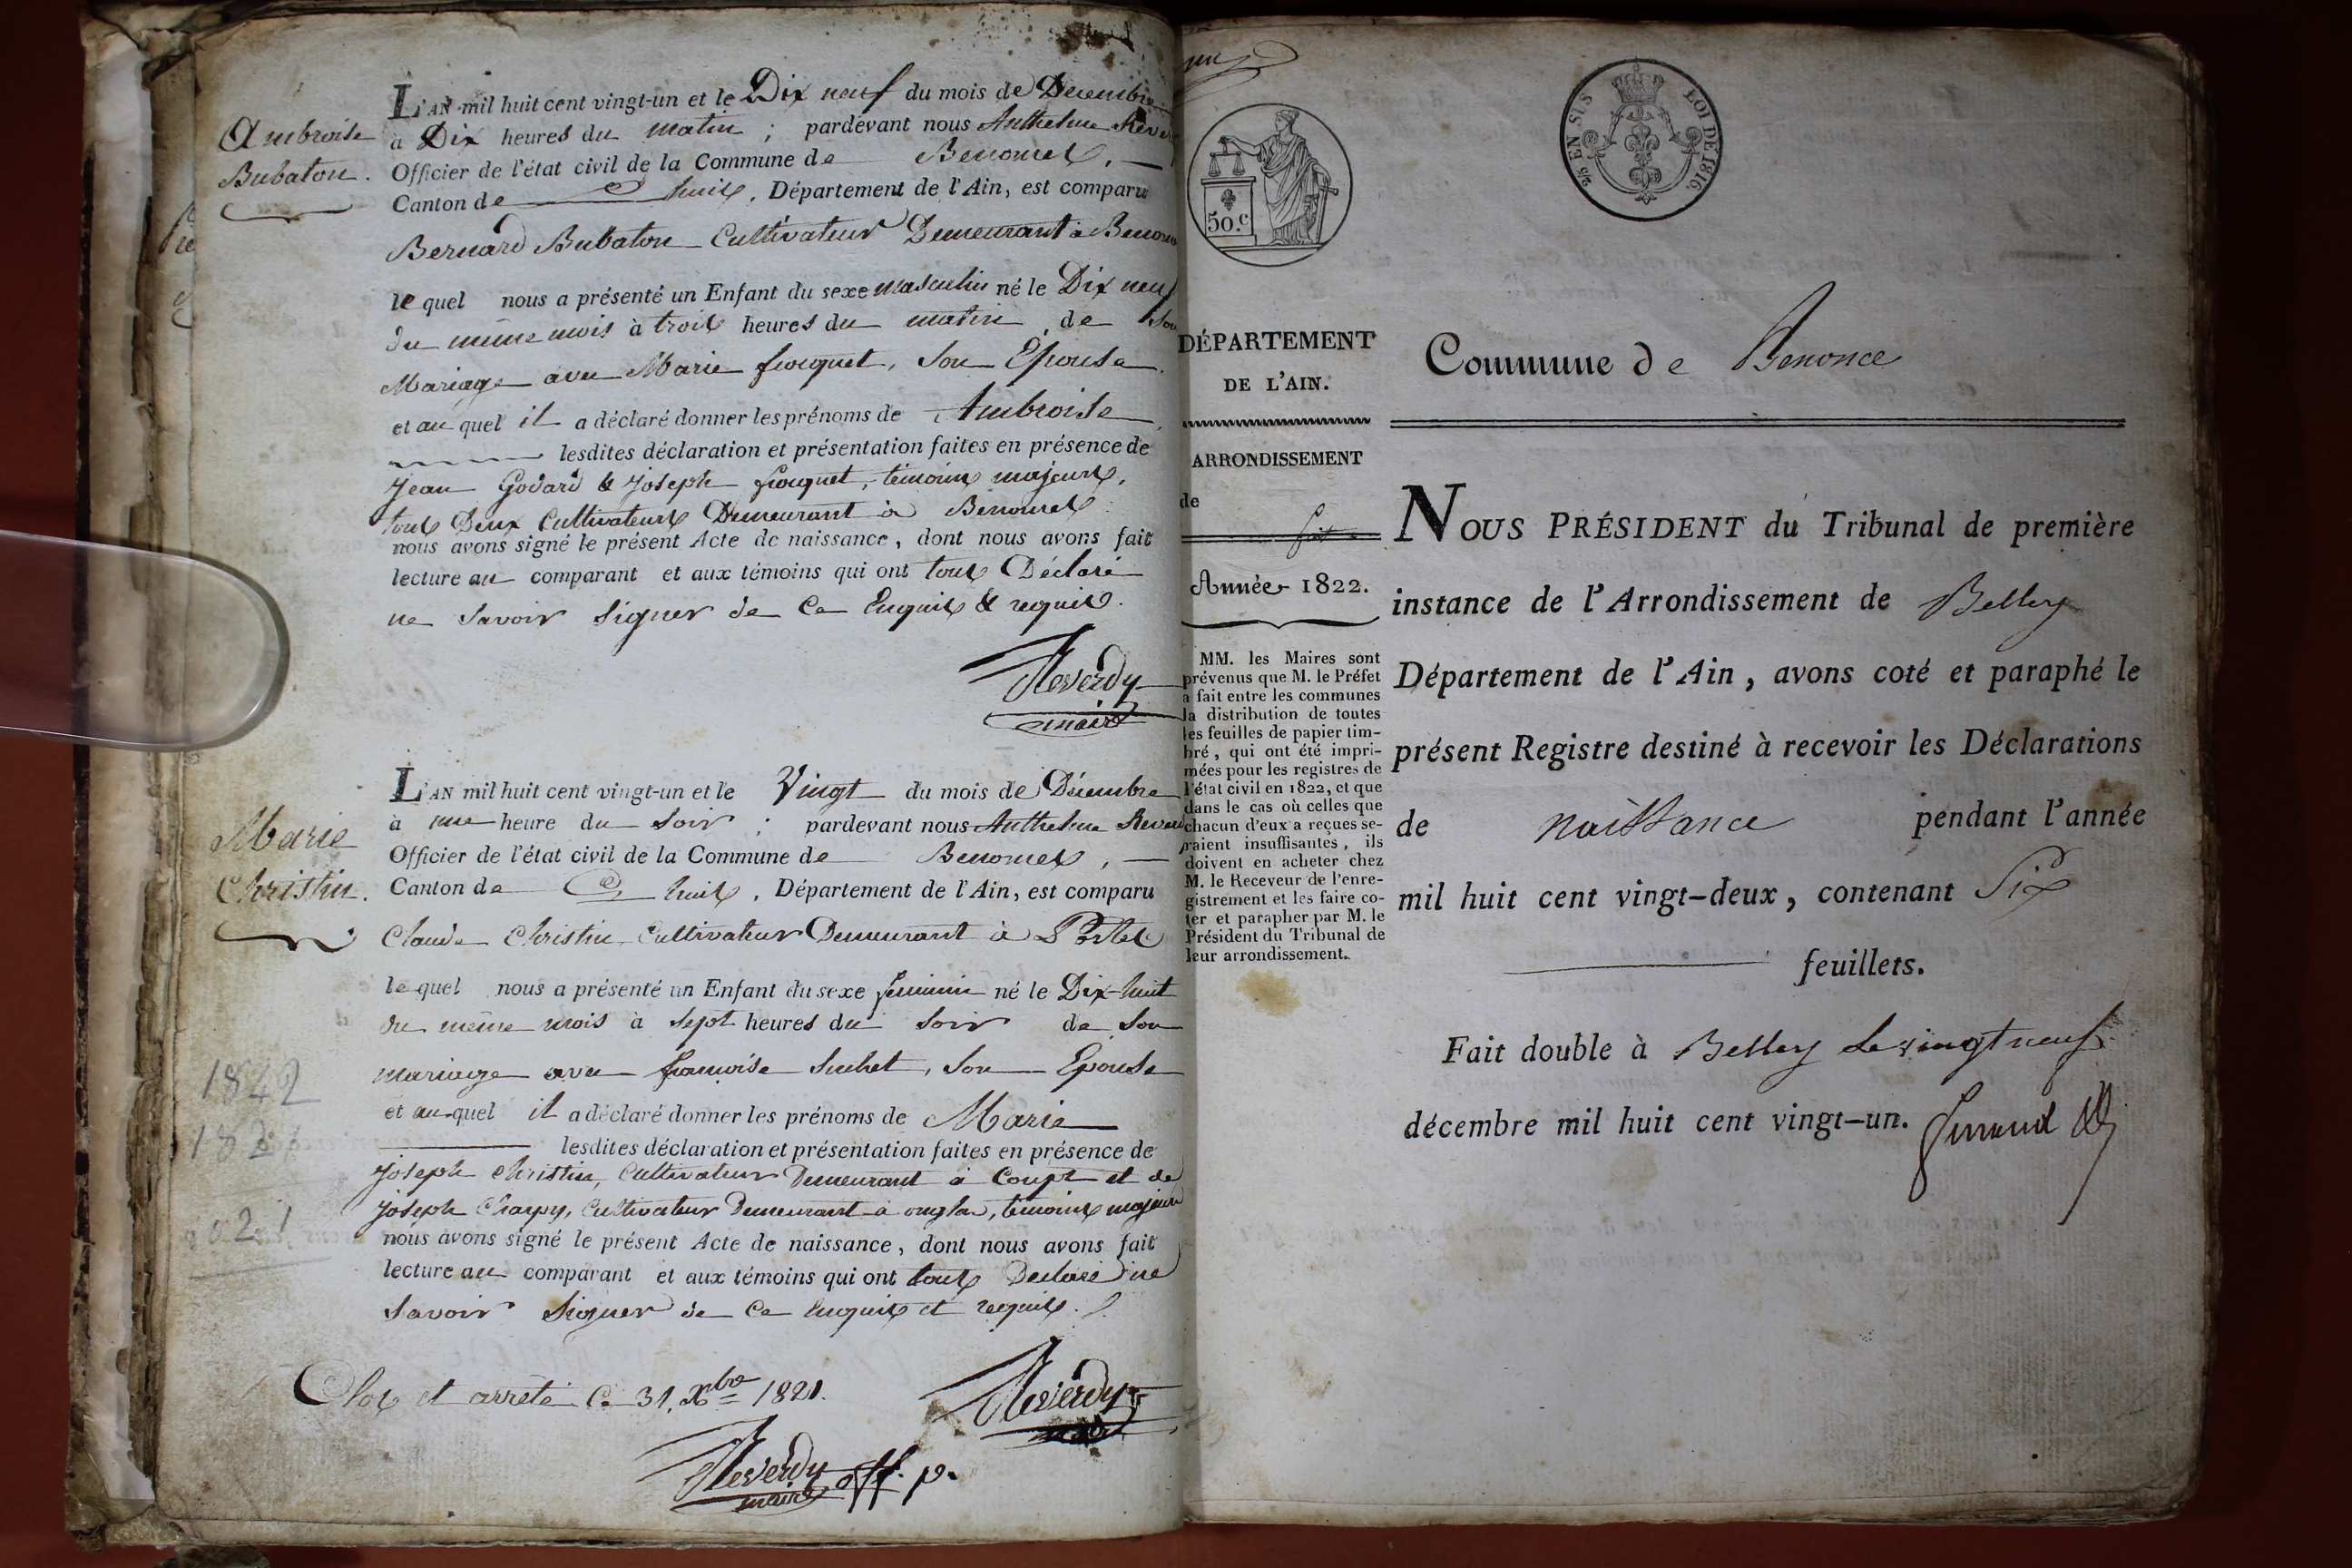 Ambroise
Bubaton.
L'AN mil huit cent vingt-un et le Dix neuf du mois de Decembre
à Dix heures du matin ; pardevant nous Anthelme
Officier de l'état civil de la Commune de Benonces,
Canton de huis, Département de l'Ain, est comparu
Bernard Bubaton Cultivateur Demeurant à
le quel nous a présenté un Enfant du sexe masculin né le Dix neuf
du même mois à trois heures du matin, de Son
Mariage avec Marie fouquet, Son Epouse.
et au quel il a déclaré donner les prénoms de Ambroise
lesdites déclaration et présentation faites en présence de
Jean Godard & Joseph fouquet, témoins majeurs,
tous Deux Cultivateurs Demeurant à Benonces
nous avons signé le présent Acte de naissance, dont nous avons fait
lecture au comparant et aux témoins qui ont tous Déclaré
ne Savoir Signer de Ce Enquis & requis.
Reverdy
maire
Marie
Christin.
L'AN mil huit cent vingt-un et le Vingt du mois de Décembre
à une heure du Soir ; pardevant nous Anthelme
Officier de l'état civil de la Commune de Benonces,
Canton de huis, Département de l'Ain, est comparu
Claude Christin Cultivateur Demeurant à
le quel nous a présenté un Enfant du sexe feminin né le Dix-huit
du même mois à Sept heures du Soir de Son
mariage avec françoise Suchet, Son Epouse
et au quel il a déclaré donner les prénoms de Marie
lesdites déclaration et présentation faites en présence de
Joseph Christin, Cultivateur Demeurant à et de
Joseph Charpy, Cultivateur Demeurant à onglas, témoins majeurs
nous avons signé le présent Acte de naissance, dont nous avons fait
lecture au comparant et aux témoins qui ont tous Declaré ne
Savoir Signer de Ce Enquis et requis.
1842
Clos et arrêté Ce 31. Xbre 1821.
Reverdy
Reverdy off. p.
maire
50.c
2/5 EN SUS
LOI DE 1816.
DÉPARTEMENT
DE L'AIN.
ARRONDISSEMENT
de
Année 1822.
MM. les Maires sont
prévenus que M. le Préfet
a fait entre les communes
la distribution de toutes
les feuilles de papier tim-
bré, qui ont été impri-
mées pour les registres de
l'état civil en 1822, et que
dans le cas où celles que
chacun d'eux a reçues se-
raient insuffisantes, ils
doivent en acheter chez
M. le Receveur de l'enre-
gistrement et les faire co-
ter et parapher par M. le
Président du Tribunal de
leur arrondissement.
Commune de Benonce
NOUS PRÉSIDENT du Tribunal de première
instance de l'Arrondissement de Belley
Département de l'Ain, avons coté et paraphé le
présent Registre destiné à recevoir les Déclarations
de naissance pendant l'année
mil huit cent vingt-deux, contenant Six
feuillets.
Fait double à Belley le vingt neuf
décembre mil huit cent vingt-un.